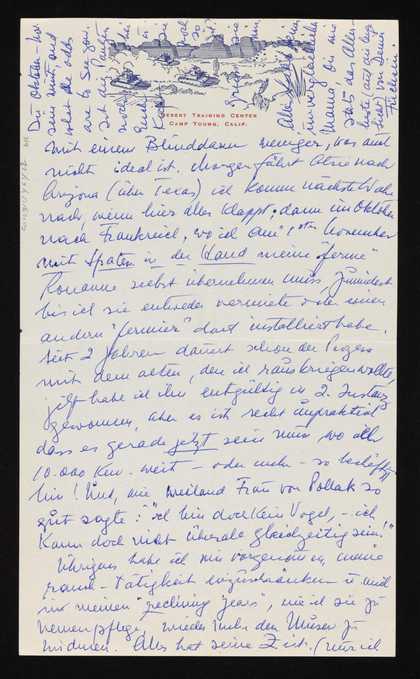 DESERT TRAINING CENTER
CAMP YOUNG, CALIF.
mit einem Blinddarm weniger, was auch
nicht ideal ist. Morgen fährt nach
Arizona (über Texas) ich komme nächste Woche
nach, wenn hier alles klappt; dann im Oktober
nach Frankreich, wo ich am 1sten November
mit Spaten in der Hand meine "ferme"
Romanne selbst übernehmen muss, zumindest
bis ich sie entweder vermiete oder einen
andern "fermier" dort installiert habe.
Seit 2 Jahren dauert schon der Prozess
mit dem alten, den ich rauskriegen wollte,
jetzt habe ich ihn entgültig in 2. Instanz
gewonnen, aber es ist recht unpraktisch
dass es gerade jetzt sein muss wo ich
10.000 Km. weit – oder mehr – so beschäftigt
bin! Und, wie weiland Frau von Pollak so
gut sagte: "ich bin doch kein Vogel, – ich
kann doch nicht überall gleichzeitig sein!"
Übrigens habe ich mir vorgenommen, meine
ranch-tätigkeit einzuschränken u. mich
in meinen "reclining years", wie ich sie zu
nennen pflege, wieder mehr den Musen zu
widmen. Alles hat seine Zeit. (nur ich
Die Oktober-
sein mit und
what the odds
are to see you